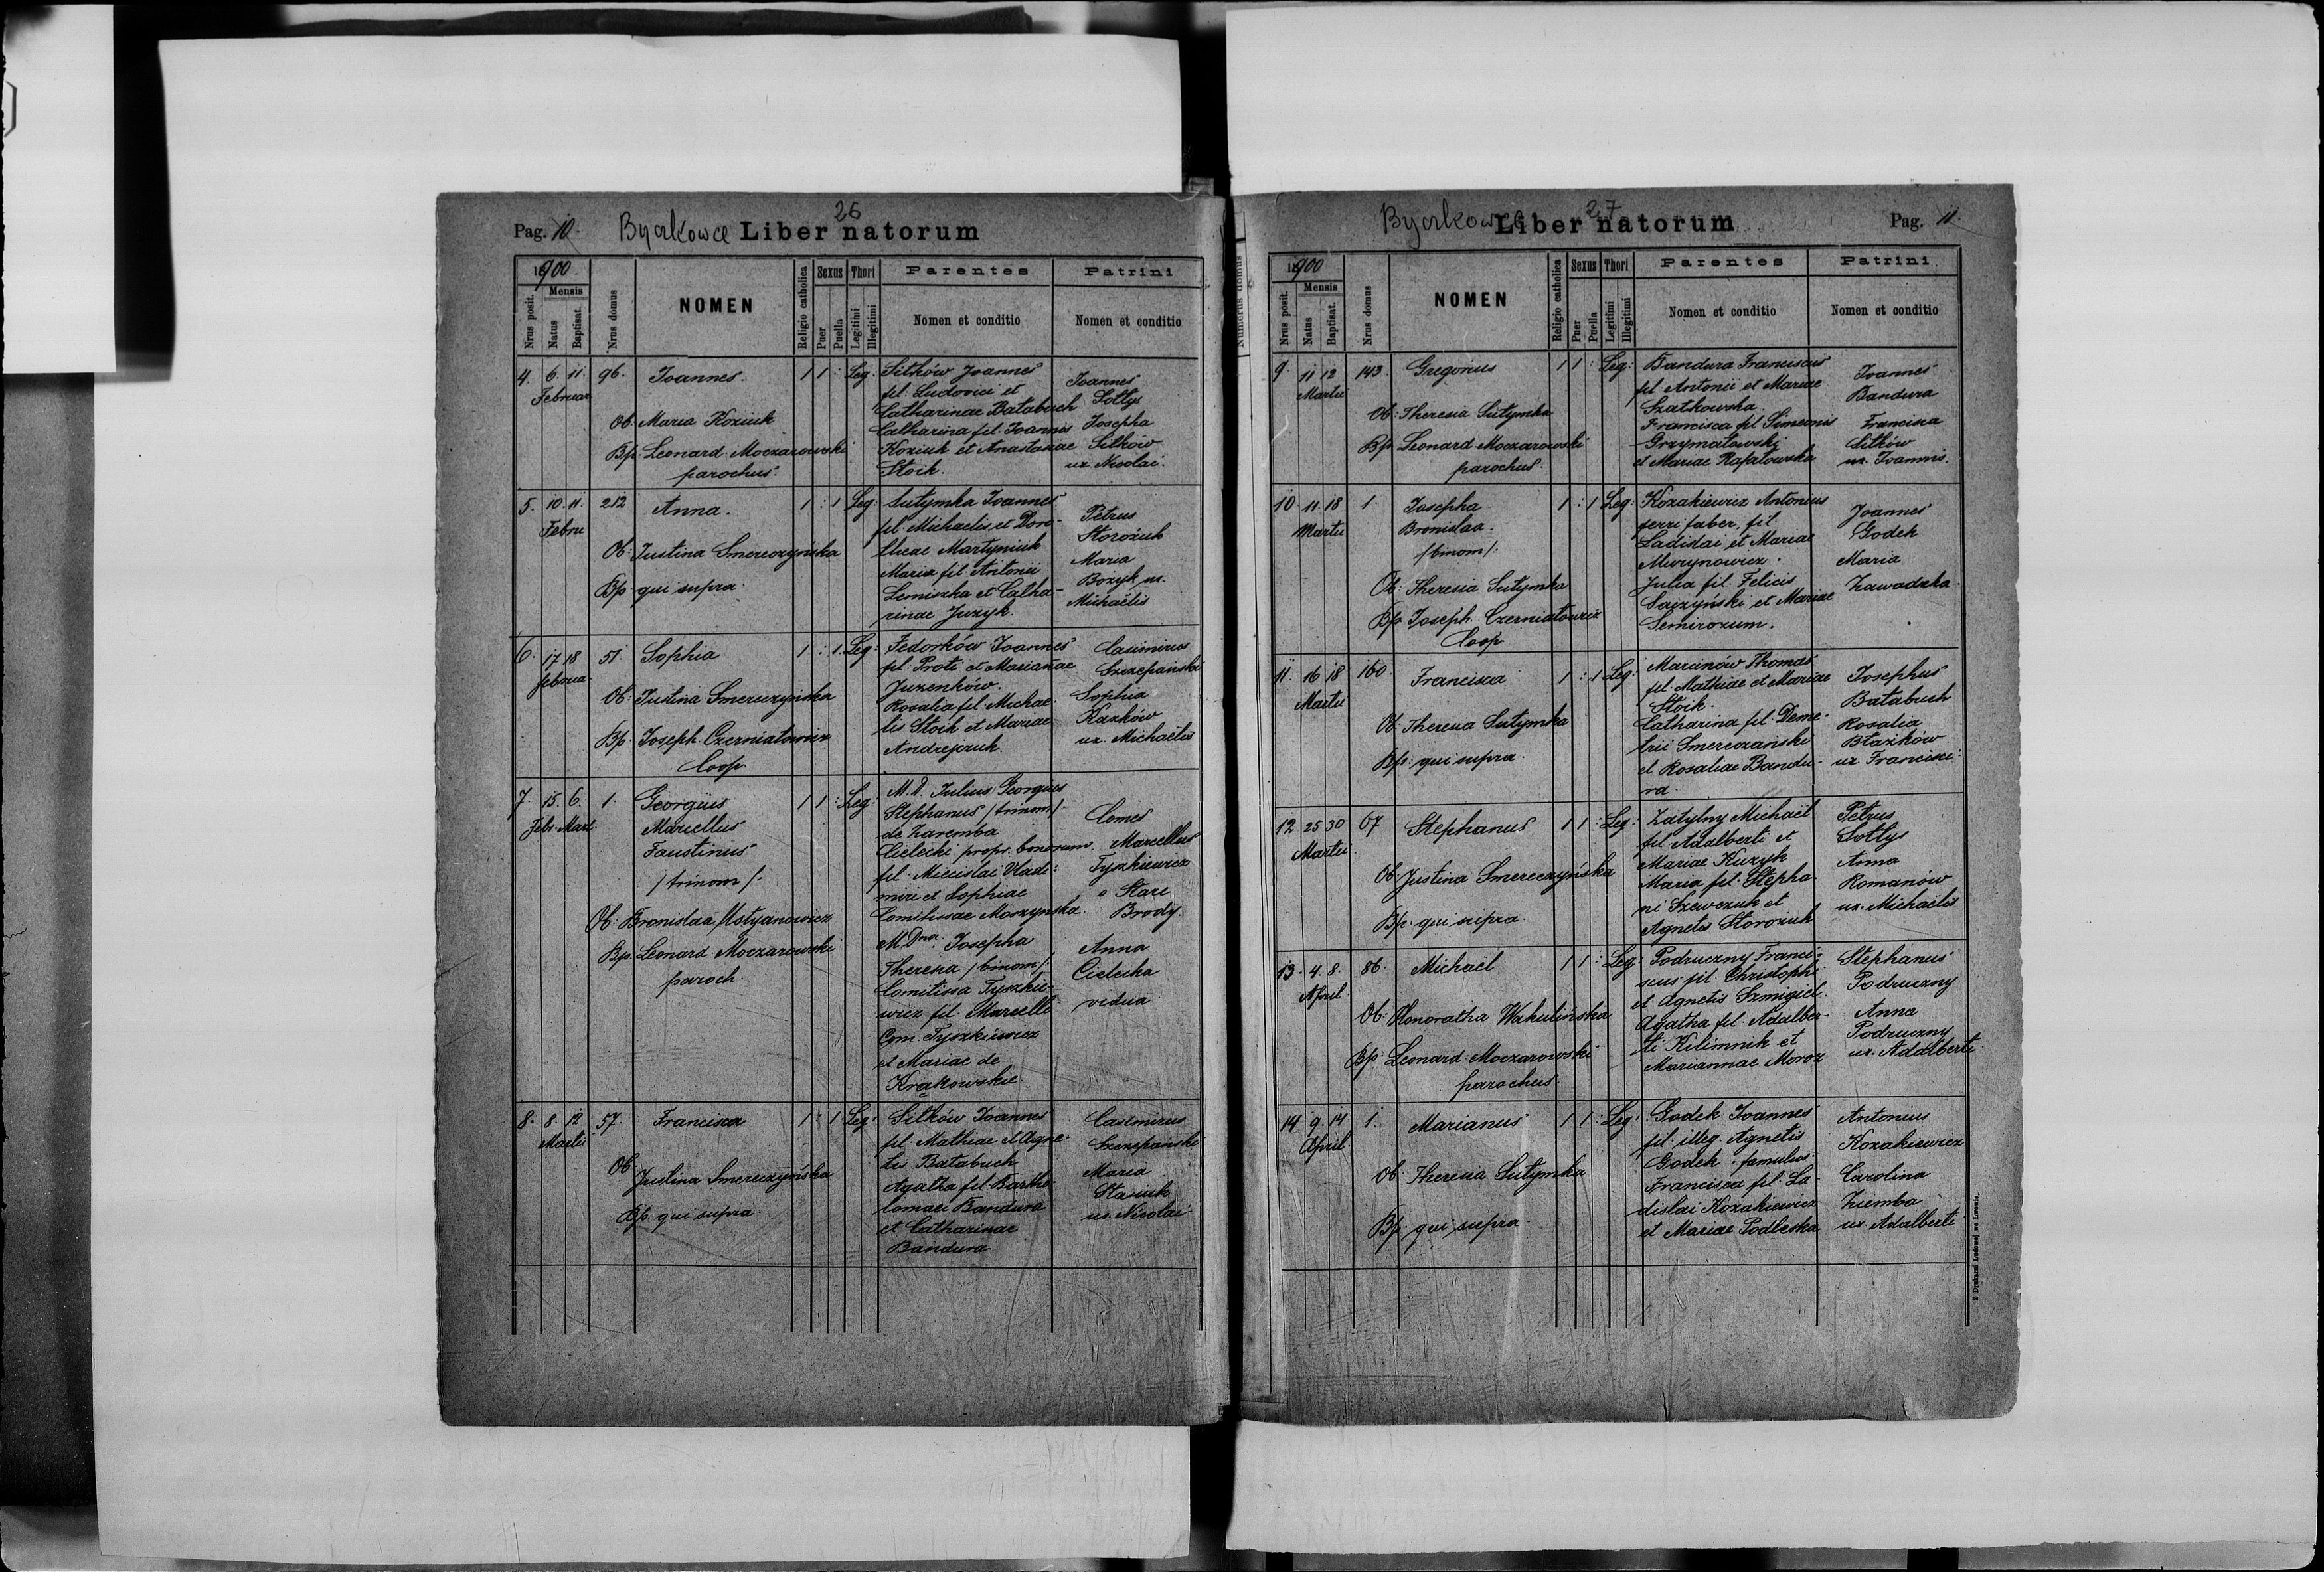 26
Pag. 10. Byczkowce Liber natorum
1900
Nrus posit.
Mensis
Natus
Baptisat.
Nrus domus
NOMEN
Religio catholica
Sexus
Puer
Puella
Thori
Legitimi
Illegitimi
Parentes
Nomen et conditio
Patrini
Nomen et conditio
4. 6. 11. 96. Joannes. 1 1 : Leg:
Februar
Ob. Maria Koziuk
Bp. Leonard Moczarowski
parochus.
Sitków Joannes
fil. Ludovici et
Catharinae Batabuch
Catharina fil. Joannis
Koziuk et Anastasiae
Stoik.
Joannes
Sottys
Josepha
Sitków
ux. Nicolai.
5. 10. 11. 212 Anna. 1 : 1 Leg:
Febru
Ob: Justina Smereczyńska
Bp. qui supra.
Sutymka Joannes
fil. Michaelis et Doro-
theae Martyniuk
Maria fil. Antonii
Lemiszka et Catha-
rinae Juzyk.
Petrus
Storożuk
Maria
Bożyk ux.
Michaëlis
6. 17 18 51. Sophia 1 : 1 Leg:
februa
Ob. Justina Smereczyńska
Bp. Joseph Czerniatowicz
Coop.
Fedorków Joannes
fil. Proti et Marianae
Juzenków.
Rosalia fil. Michae-
lis Stoik et Mariae
Andrejczuk.
Casimirus
Szczepański
Sophia
Kazków
ux. Michaëlis
7. 15. 6. 1. Georgius 1 1 : Leg:
Febr. Mart.
Marcellus
Faustinus
/trinom/.
Ob. Bronislaa Mstyanowicz
Bp. Leonard Moczarowski
paroch.
M.D. Julius Georgius
Stephanus /trinom/.
de Zaremba
Cielecki propr. bonorum.
fil. Miecislai Vladi-
miri et Sophiae
Comitissae Moszynska.
M. Dna. Josepha
Theresia /binom/.
Comitissa Tyszkie-
wicz fil. Marcelli
Com. Tyszkiewicz
et Mariae de
Krąkowskie.
Comes
Marcellus
Tyszkiewicz
e Stare
Brody.
Anna
Cielecka
vidua
8. 8. 12 57. Francisca 1 : 1 Leg:
Martii
Ob
Justina Smereczyńska
Bp. qui supra.
Sitków Joannes
fil. Mathiae et Agne-
tis Batabuch
Agatha fil. Bartho-
lomaei Bandura
et Catharinae
Bandura
Casimirus
Szczepański
Maria
Stasiuk
ux. Nicolai.
27
Byczkowce Liber natorum Pag. 11.
Numerus domus
1900
Nrus posit.
Mensis
Natus
Baptisat.
Nrus domus
NOMEN
Religio catholica
Sexus
Puer
Puella
Thori
Legitimi
Illegitimi
Parentes
Nomen et conditio
Patrini
Nomen et conditio
9. 11 12 143. Gregorius 1 1 : Leg:
Martii
Ob: Theresia Sutymka
Bp Leonard Moczarowski
parochus.
Bandura Franciscus
fil. Antonii et Mariae
Szatkowska.
Francisca fil Simeonis
Grzymatowski
et Mariae Rafatowska
Joannes
Bandura
Francisca
Sitków
ux. Joannis.
10 11. 18 1. Josepha 1 : 1 Leg:
Martii
Bronislaa.
/binom/.
Ob. Theresia Sutymka
Bp. Joseph. Czerniatowicz
Coop
Kozakiewicz Antonius
ferri faber, fil.
Ladislai et Mariae
Murynowicz.
Julia fil. Felicis
Saczyński et Mariae
Semirozum.
Joannes
Godek
Maria
Zawadzka
11. 16 18 160. Francisca 1 : 1 Leg:
Martii
Ob. Theresia Sutymka
Bp. qui supra.
Marcinów Thomas
fil. Mathiae et Mariae
Stoik.
Catharina fil. Deme-
trii Smereczański
et Rosaliae Bandu-
ra.
Josephus
Batabuch
Rosalia
Błażków
ux Francisci.
12 25 30 67 Stephanus 1 1 : Leg:
Martii.
Ob. Justina Smereczyńska
Bp. qui supra.
Zatylny Michaël
fil. Adalberti et
Mariae Kuzyk
Maria fil. Stepha-
ni Szewczuk et
Agnetis Storożuk
Petrus
Sottys
Anna
Romanów
ux. Michaëlis
13. 4. 8. 86. Michaël 1 1 : Leg:
April.
Ob: Honoratha Wakulińska
Bp. Leonard Moczarowski
parochus.
Podruczny Franci-
scus fil. Christophi
et Agnetis Szmigiel.
Agatha fil. Adalber-
ti Kilimnik et
Mariannae Moroz
Stephanus
Podruczny
Anna
Podruczny
ux. Adalberti
14 9. 14 1. Marianus 1 1 : Leg:
April.
Ob. Theresia Sutymka
Bp. qui supra.
Godek Joannes
fil. illeg. Agnetis
Godek. famulus.
Francisca fil. La-
dislai Kozakiewicz
et Mariae Podleska
Antonius
Kozakiewicz
Carolina
Ziemba
ux. Adalberti
Z Drukarni Ludowej we Lwowie.